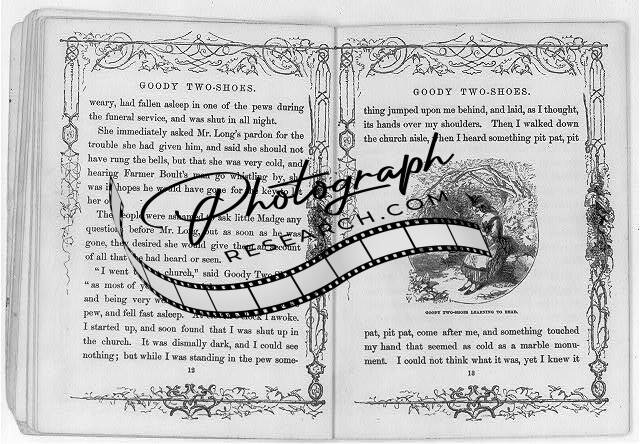 GOODY TWO-SHOES.
weary, had fallen asleep in one of the pews during
the funeral service, and was shut in all night.
She immediately asked Mr. Long's pardon for the
trouble she had given him, and said she should not
have rung the bells, but that she was very cold, and
hearing Farmer Boult's man go whistling by, she
was in hopes he would have gone for the key to let
her o
The people were ashamed to ask little Madge any
question before Mr. Long, but as soon as he was
gone, they desired she would give them an account
of all that she had heard or seen.
"I went to the church," said Goody Two-Sh
"as most of y
and being very we
pew, and fell fast asleep. clock I awoke.
I started up, and soon found that I was shut up in
the church. It was dismally dark, and I could see
nothing; but while I was standing in the pew some-
12
GOODY TWO-SHOES.
thing jumped upon me behind, and laid, as I thought,
its hands over my shoulders. Then I walked down
the church aisle, when I heard something pit pat, pit
GOODY TWO-SHOES LEARNING TO READ.
pat, pit pat, come after me, and something touched
my hand that seemed as cold as a marble monu-
ment. I could not think what it was, yet I knew it
13
Photograph
RESEARCH.COM